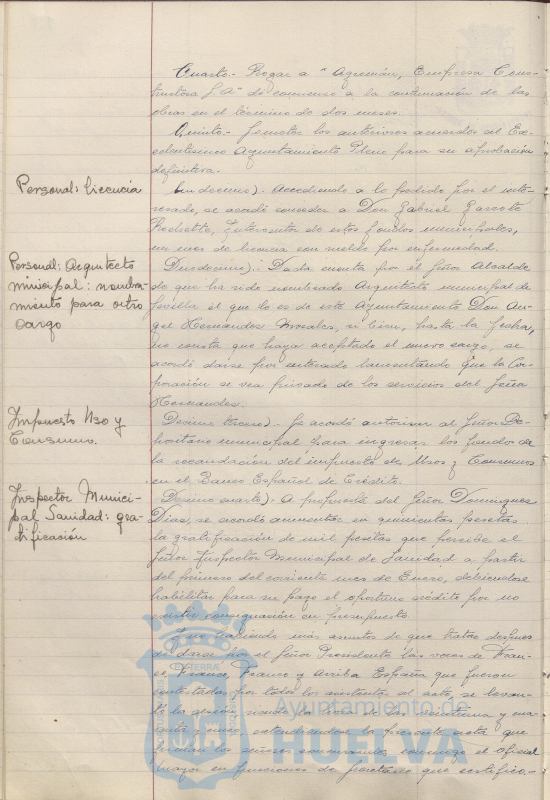 Cuarto.- Rogar a "Agroman, Empresa Cons-
tructora S.A" dé comienzo a la continuación de las
obras en el término de dos meses.
Quinto.- Someter los anteriores acuerdos al Ex-
celentísimo Ayuntamiento Pleno para su aprobación
definitiva.
Personal: licencia
Undecimo).- Accediendo a lo pedido por el inte-
resado, se acordó conceder a Don Gabriel
Interventor de estos fondos municipales,
un mes de licencia con sueldo por enfermedad.
Personal: Arquitecto
municipal: nombra-
miento para otro
cargo
Duodecimo).- Dada cuenta por el Señor Alcalde
de que ha sido nombrado Arquitecto municipal de
Sevilla el que lo es de este Ayuntamiento Don An-
gel Hernandez Morales, si bien, hasta la fecha,
no consta que haya aceptado el nuevo cargo, se
acordó darse por enterado lamentando que la Cor-
poración se vea privada de los servicios del Señor
Hernandez.
Impuesto Uso y
Consumo.
Decimo tercero).- Se acordó autorizar al Señor De-
positario municipal para ingresar los fondos de
la recaudación del impuesto de Usos y Consumos
en el Banco Español de Crédito.
Inspector Munici-
pal Sanidad: gra-
tificación
Decimo cuarto).- A propuesta del Señor Dominguez
Diaz, se acordó aumentar en quinientas pesetas
la gratificación de mil pesetas que percibe el
Señor Inspector Municipal de Sanidad a partir
del primero del corriente mes de Enero, debiendose
habilitar para su pago el oportuno crédito por no
existir consignación en presupuesto.
Y no habiendo más asuntos de que tratar despues
de darse por el Señor Presidente las voces de Fran-
co, Franco, Franco y Arriba España que fueron
contestadas por todos los asistentes al acto, se levan-
tó la sesión siendo la hora de las veintiuna y cua-
renta y cinco, extendiendose la presente acta que
firman los señores concurrentes conmigo el Oficial
Mayor en funciones de Secretario que certifico.-
Ayuntamiento de
HUELVA